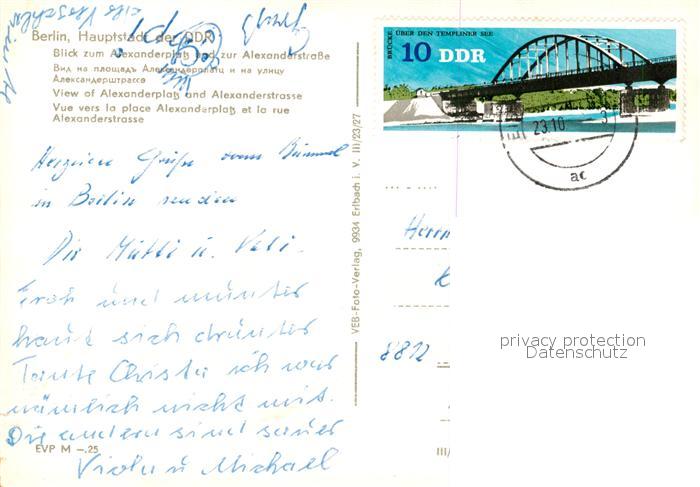 Berlin, Hauptstadt der DDR
Blick zum Alexanderplatz und zur Alexanderstraße
Вид на площадь Александерплатц и на улицу
Александерштрассе
View of Alexanderplatz and Alexanderstrasse
Vue vers la place Alexanderplatz et la rue
Alexanderstrasse
Herzliche Grüße vom Bummel
in Berlin senden
Die Mutti u. Vati.
Froh und munter
haut sich drunter
Tante Christa ich war
nämlich nicht mit.
Die andern sind sauer
Viola u Michael
EVP M –.25
VEB-Foto-Verlag, 9934 Erlbach i. V. III/23/27
BRÜCKE ÜBER DEN TEMPLINER SEE
10 DDR
23.10
ac
Herrn
8812
privacy protection
Datenschutz
III/